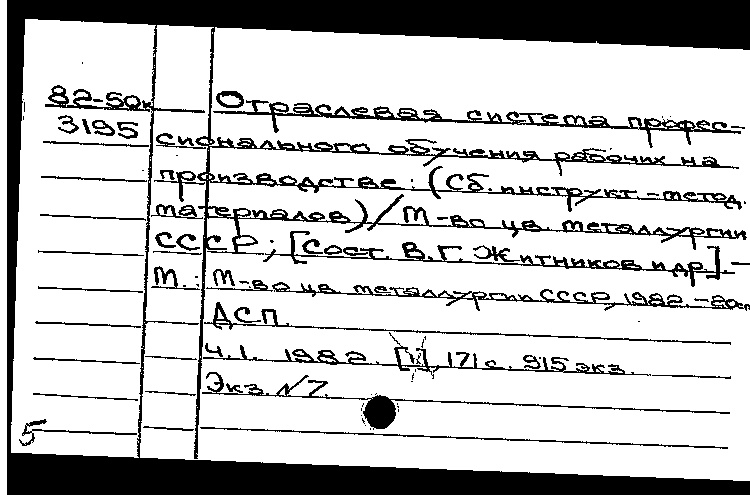 82-50к Отраслевая система профес-
3195 сионального обучения рабочих на
производстве: (Сб. инструкт.-метод.
материалов) / М-во цв. металлургии
СССР; [Сост. В.Г. Житников и др]. -
М.: М-во цв. металлургии СССР, 1982. - 20см
ДСП.
Ч.1. 1982. 171 с. 915 экз.
Экз. №7.
5